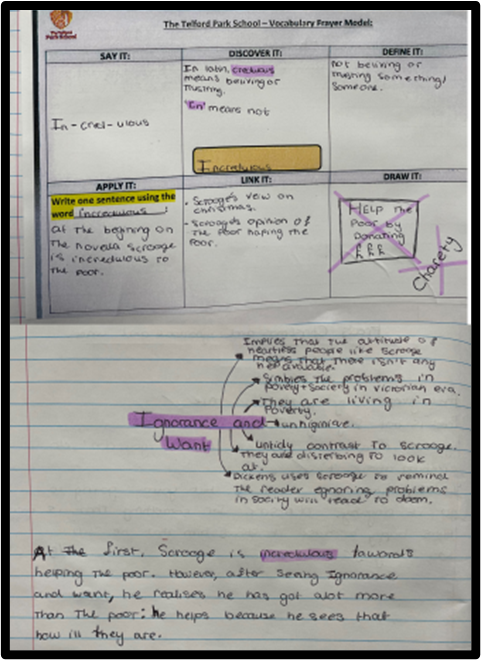 Telford
Park School
The Telford Park School – Vocabulary Frayer Model:
SAY IT:
In-cred-ulous
DISCOVER IT:
In latin, credulous
means beliving or
trusting.
'In' means not
Incredulous
DEFINE IT:
not beliving or
trusting something/
someone.
APPLY IT:
Write one sentence using the
word incredulous:
at the begining on
the novella scrooge
is incredulous to
the poor.
LINK IT:
- Scrooge's veiw on
christmas.
- Scrooge's opinion of
the poor haping the
poor.
DRAW IT:
HELP the
Poor by
Donating
£££
Charety
Implies that the attitude of
heartless people like scrooge
means that there isn't any
help
Simblies the problems in
povety + society in victorian era.
They are living in
poverty.
Ignorance and
Want
unhiginive.
untidy contrast to scrooge.
they are disterbing to look
at.
Dickens uses scrooge to remind
the reader egnoring problems
in socity will lead to doom.
At the first, Scrooge is incredulous towards
helping the poor. However, after seeing Ignorance
and want, he realises he has got alot more
than the poor: he helps because he sees that
how ill they are.